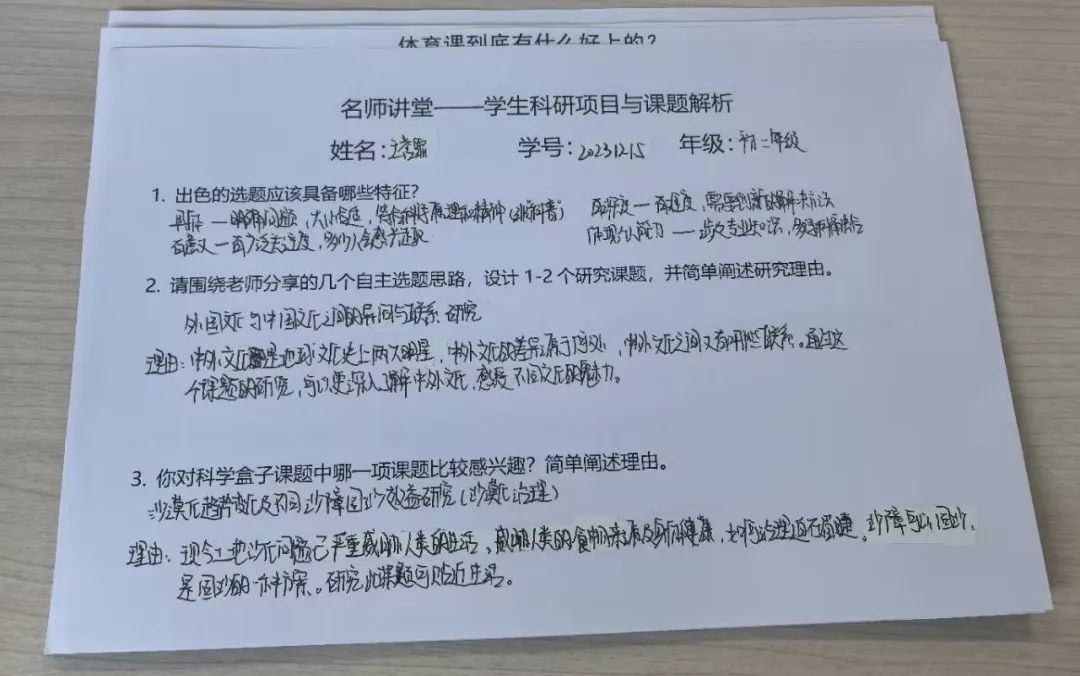 体育课到底有什么好上的?
名师讲堂——学生科研项目与课题解析
姓名: 学号:20231215 年级:初二年级
1. 出色的选题应该具备哪些特征?
具体 — 明确问题,大小合适,符合科学原理和精神(非科普) 有难度 — 有难度,需要创新的解决方法
有意义 — 有广泛关注度,多少人会感兴趣 体现个人能力 — 涉及专业知识,多学科结合
2. 请围绕老师分享的几个自主选题思路,设计 1-2 个研究课题,并简单阐述研究理由。
外国文化与中国文化之间的异同与联系研究
理由:中外文化是地球文化史上两大明星,中外文化的差异源于,中外文化之间又有哪些联系。通过这
个课题的研究,可以更深入了解中外文化,感受不同文化的魅力。
3. 你对科学盒子课题中哪一项课题比较感兴趣?简单阐述理由。
沙漠化趋势变化及不同沙障固沙效益研究(沙漠化治理)
理由:现今土地沙化问题已严重威胁人类的生活,威胁人类的食物来源及身体健康,土地治理迫在眉睫,沙障可以固沙,
是固沙的一种方案。研究此课题可贴近生活。